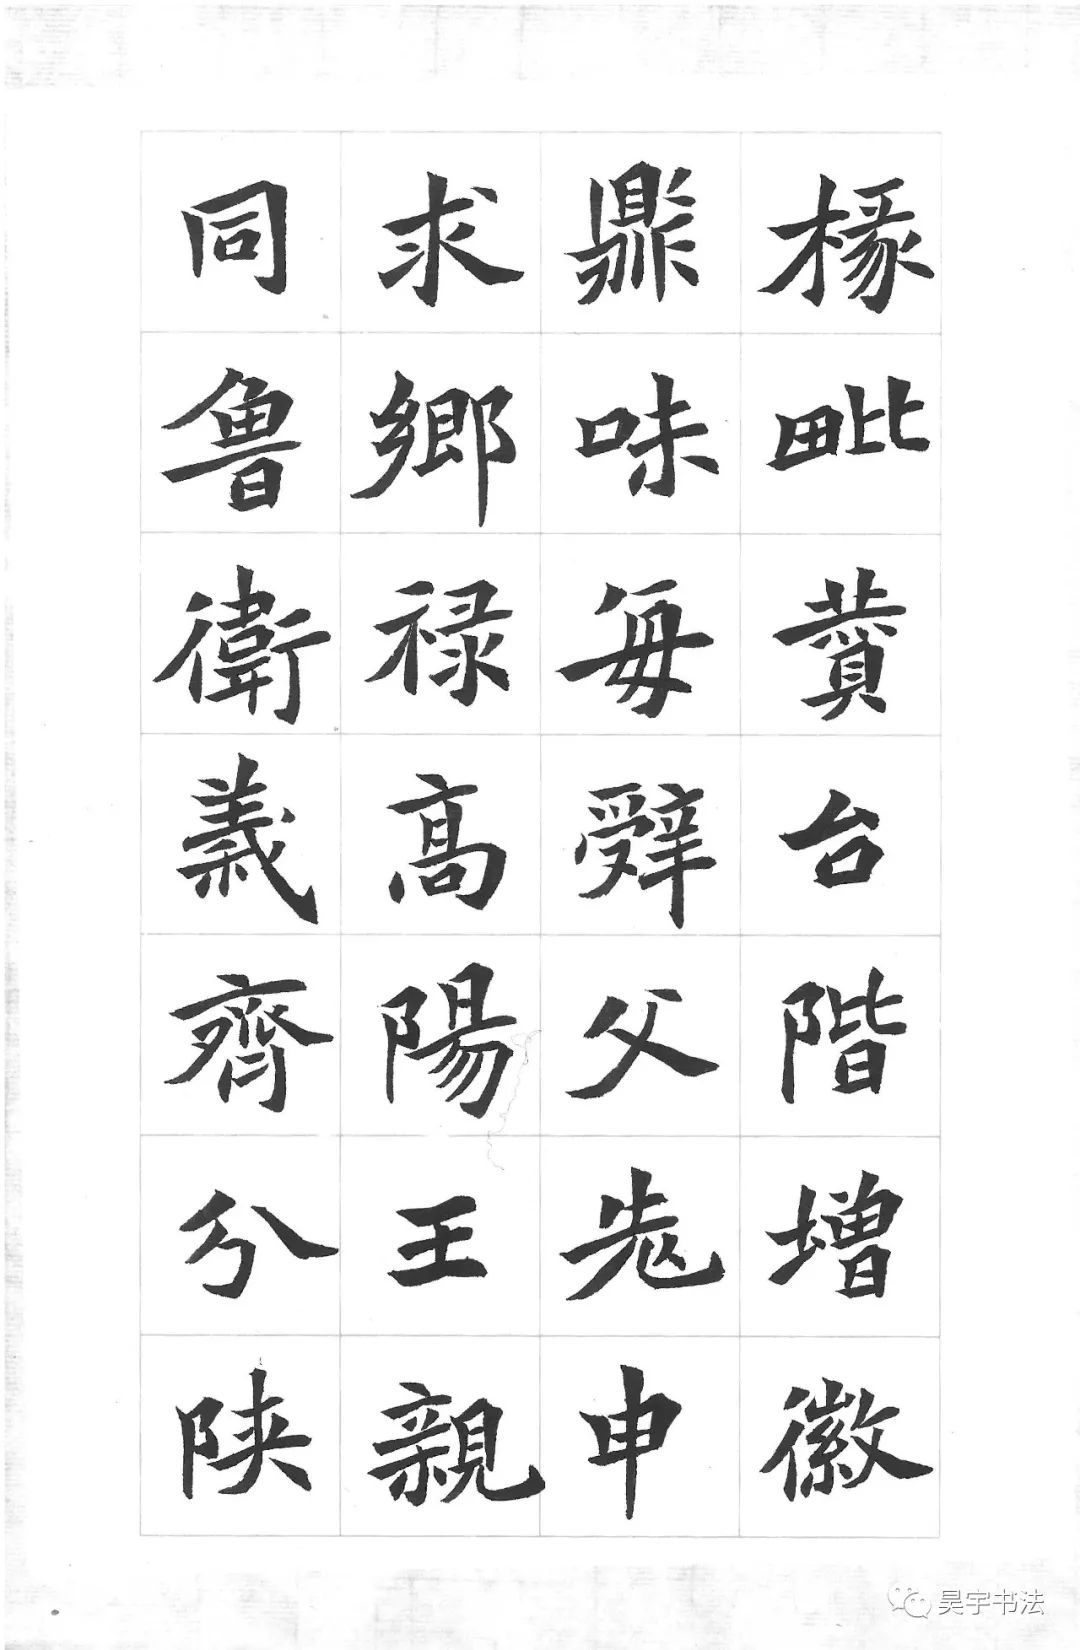 椽毗贊台階增徽
鼎味每辤父老申
求鄉禄高陽王親
同魯衛義齊分陕
昊宇书法